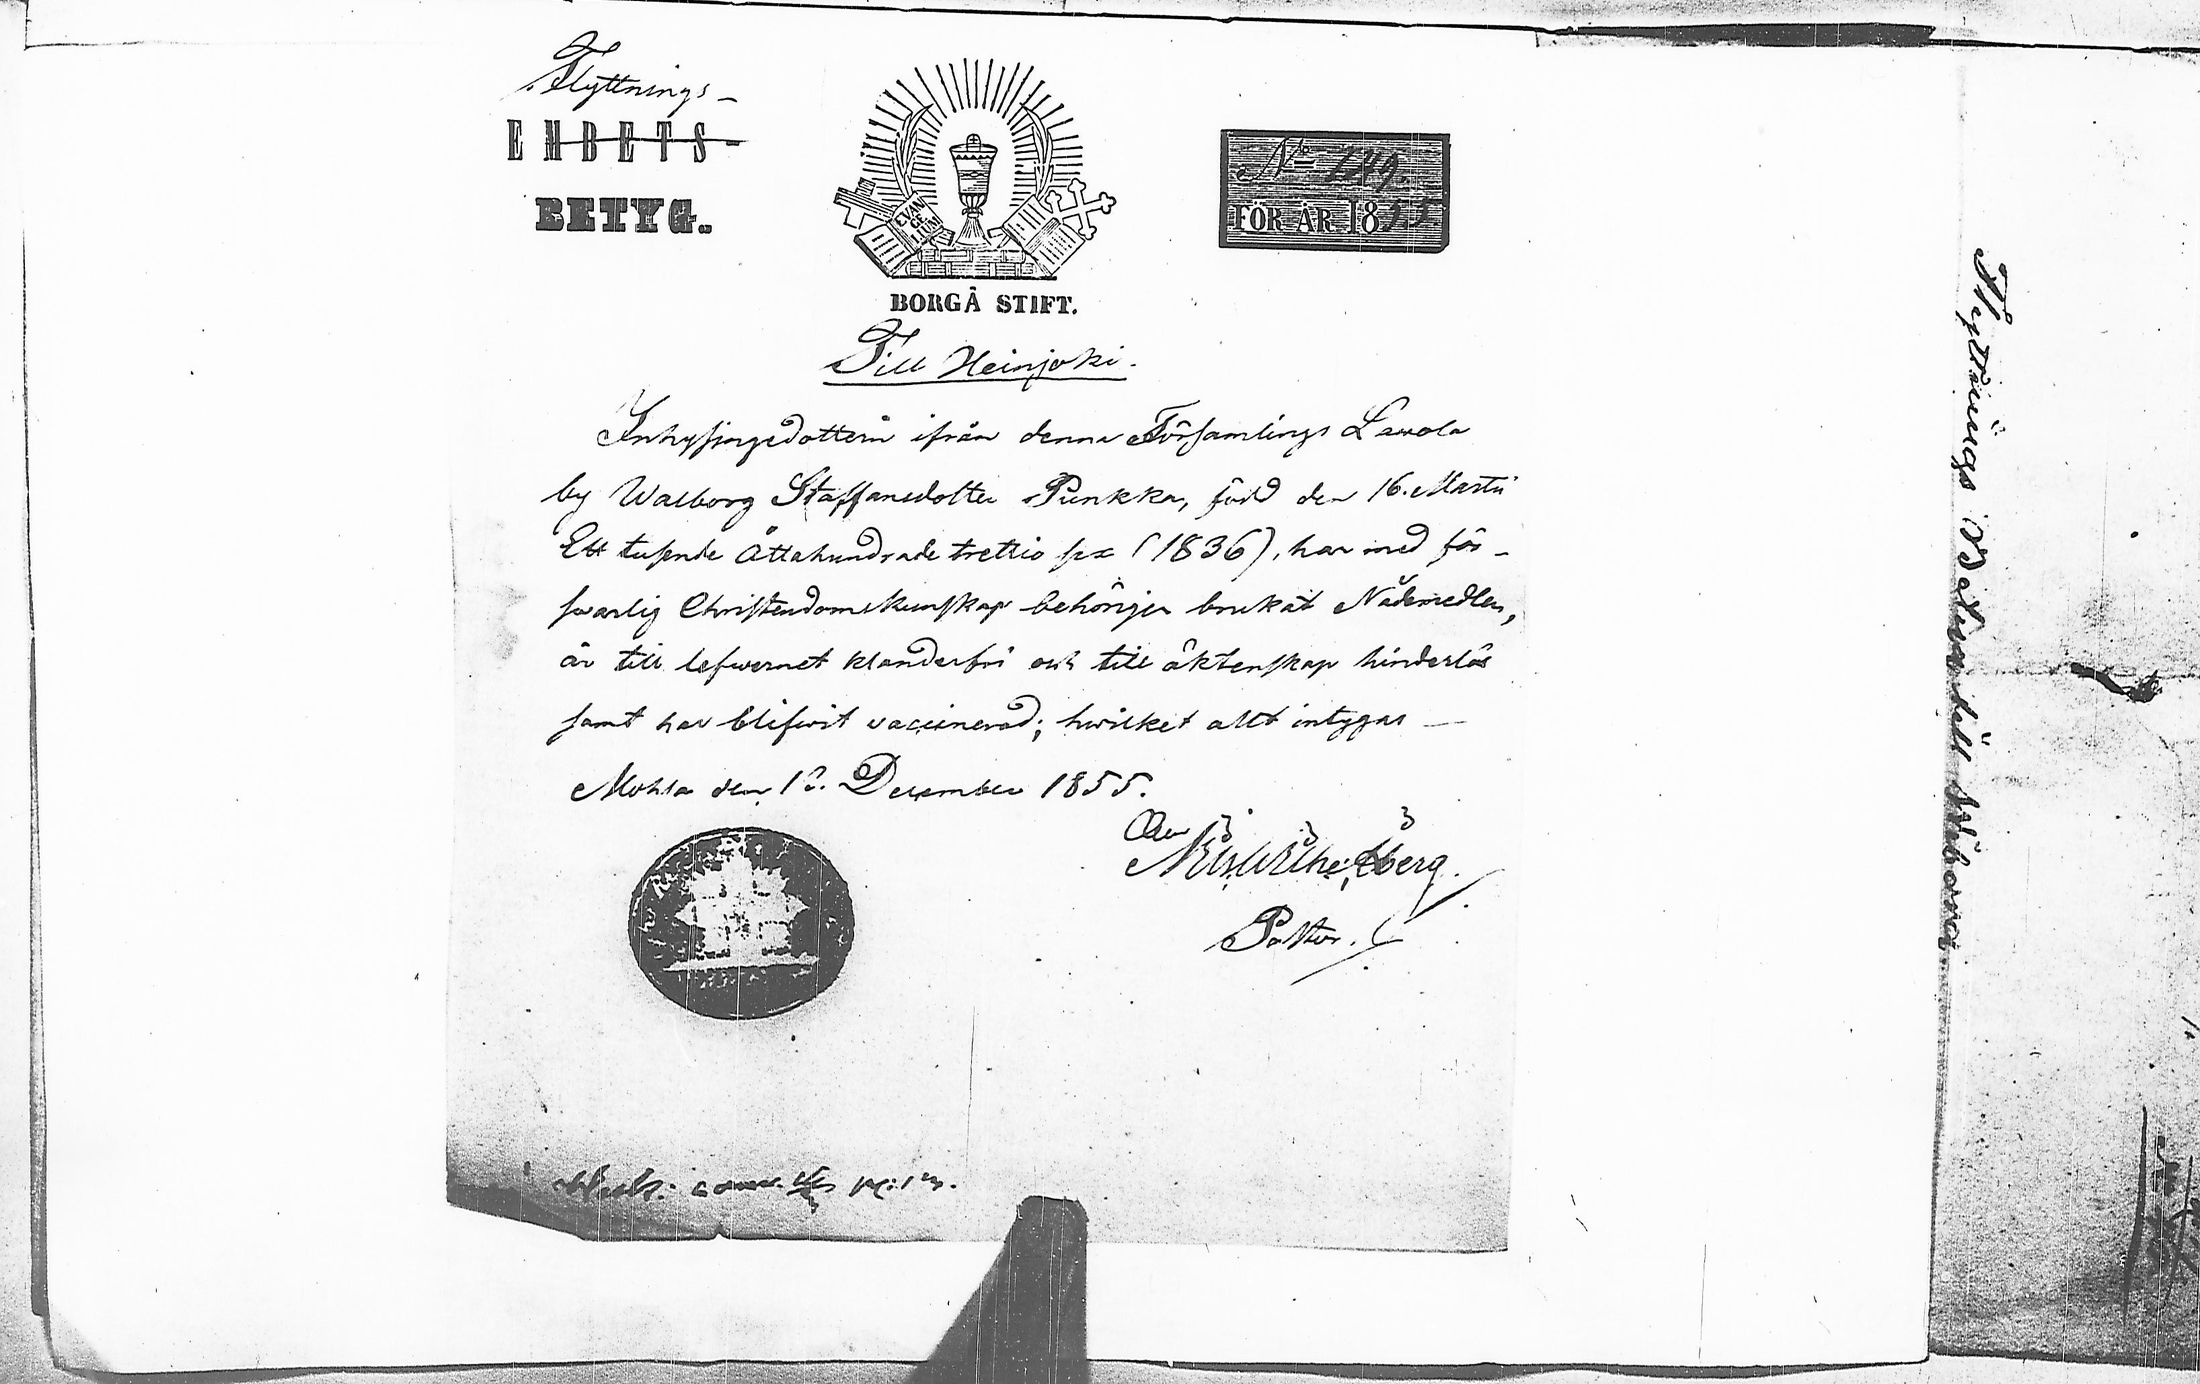 Flyttnings-
EMBETS-
BETYG.
EVAN
GE
LIUM
BORGÅ STIFT.
No 149.
FÖR ÅR 1855.
Till Heinjoki.
Inhysingedottern ifrån denna Församlings Lawola
by Walborg Staffansdotter Punkka, född den 16. Martii
Ett tusende Åttahundrade trettio sex (1836), har med för-
swarlig Christendomskunskap behörigen brukat Nådemedlen,
är till lefwernet klanderfri och till äktenskap hinderlös
samt har blifwit vaccinerad; hwilket allt intygas —
Mohla den 18. December 1855.
Pastor.
Flyttnings Betyg till Wiborg